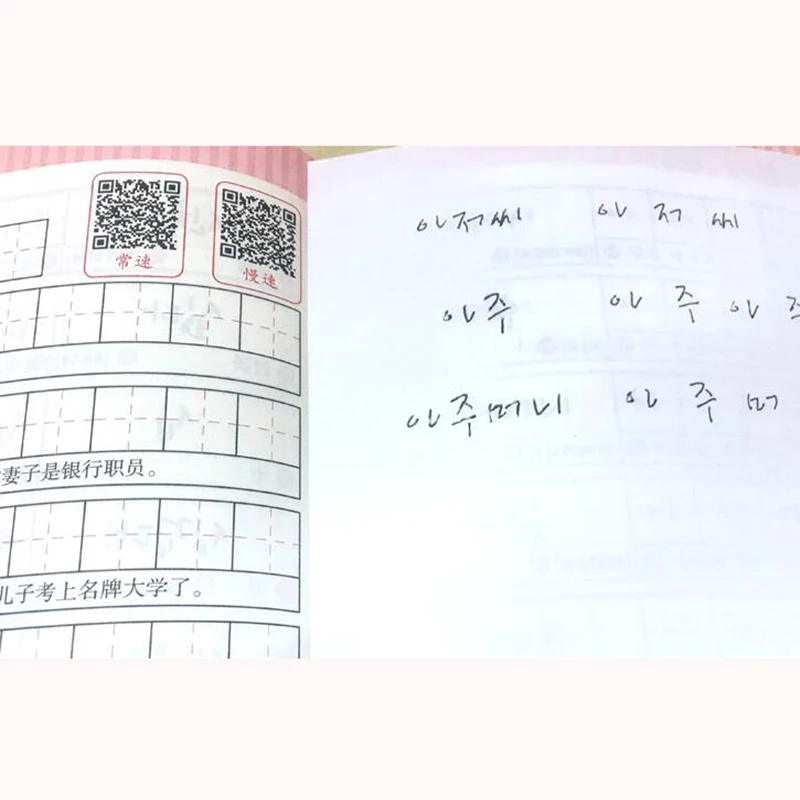 常速
慢速
妻子是银行职员。
儿子考上名牌大学了。
아저씨 아 저 씨
아주 아 주 아 주
아주머니 아 주 머